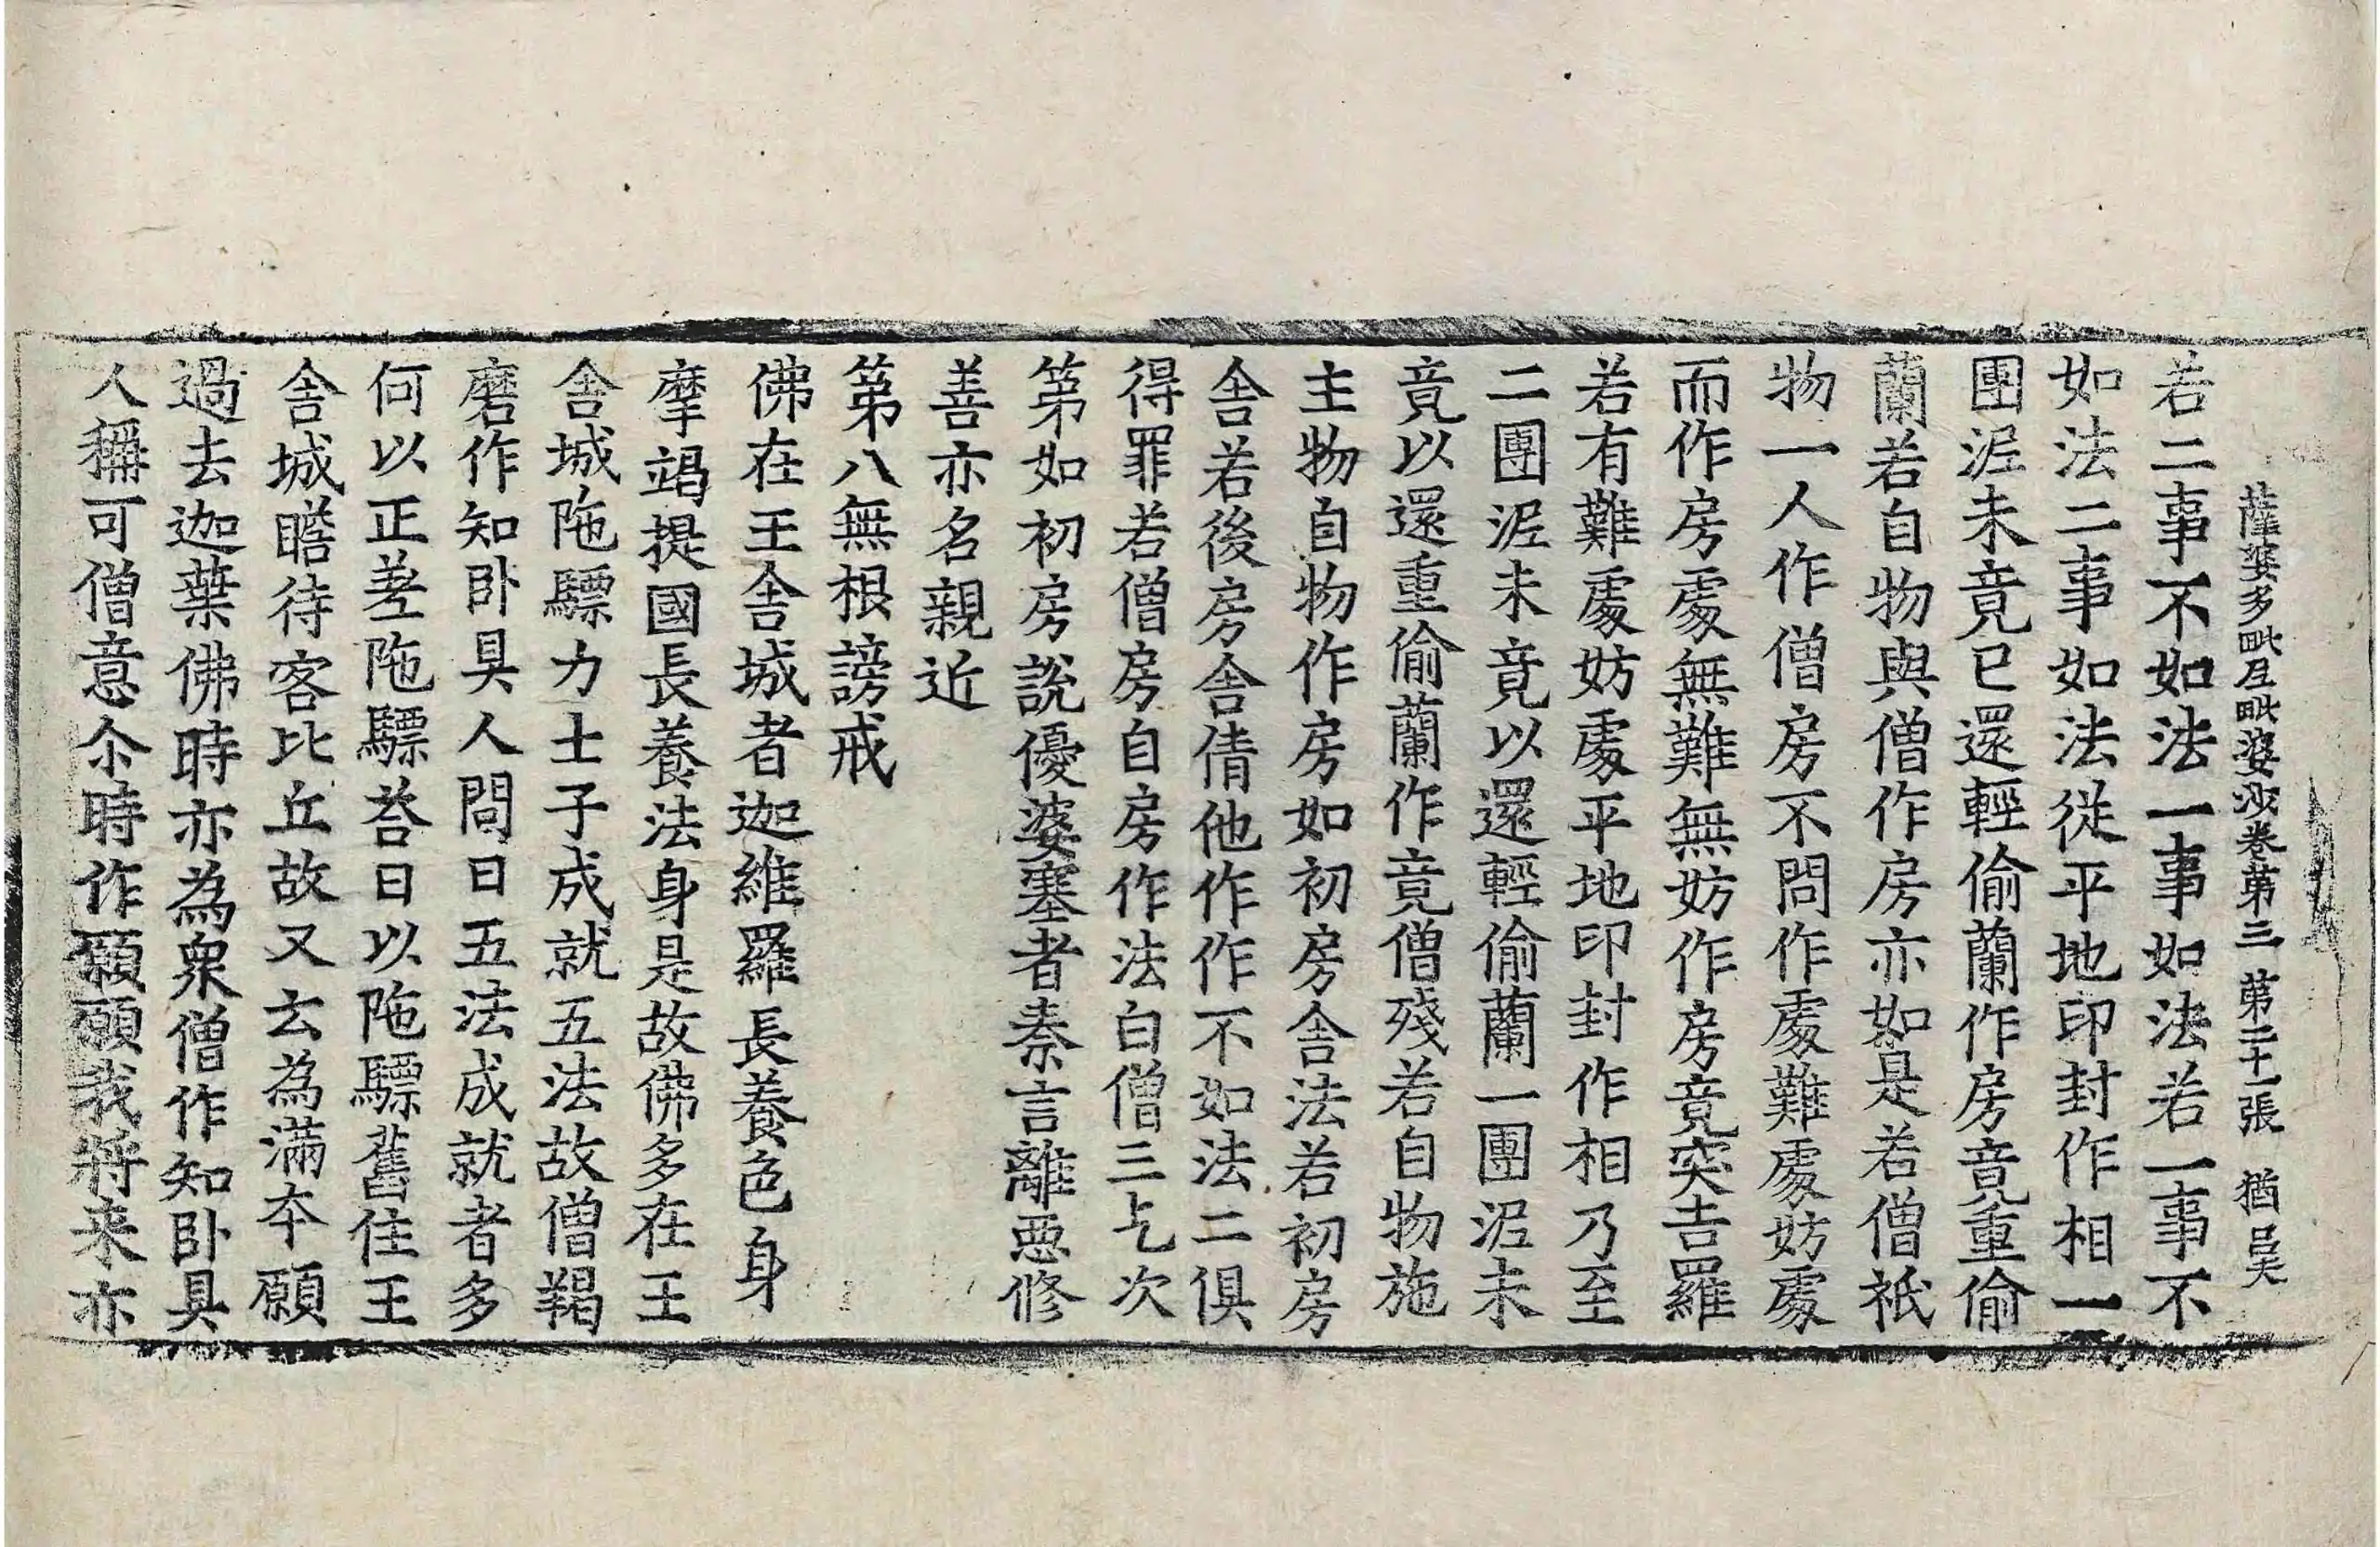 薩婆多毗尼毗婆沙卷第三 第二十一張 猶 吳
若二事不如法一事如法若一事不
如法二事如法從平地印封作相一
團泥未竟已還輕偷蘭作房竟重偷
蘭若自物與僧作房亦如是若僧祇
物一人作僧房不問作處難處妨處
而作房處無難無妨作房竟突吉羅
若有難處妨處平地印封作相乃至
二團泥未竟以還輕偷蘭一團泥未
竟以還重偷蘭作竟僧殘若自物施
主物自物作房如初房舍法若初房
舍若後房舍倩他作作不如法二俱
得罪若僧房自房作法白僧三乞次
第如初房說優婆塞者秦言離惡修
善亦名親近
第八無根謗戒
佛在王舍城者迦維羅長養色身
摩竭提國長養法身是故佛多在王
舍城陁驃力士子成就五法故僧羯
磨作知卧具人問曰五法成就者多
何以正差陁驃荅曰以陁驃舊住王
舍城瞻待客比丘故又云為滿本願
過去迦葉佛時亦為衆僧作知卧具
人稱可僧意尒時作願願我將来亦